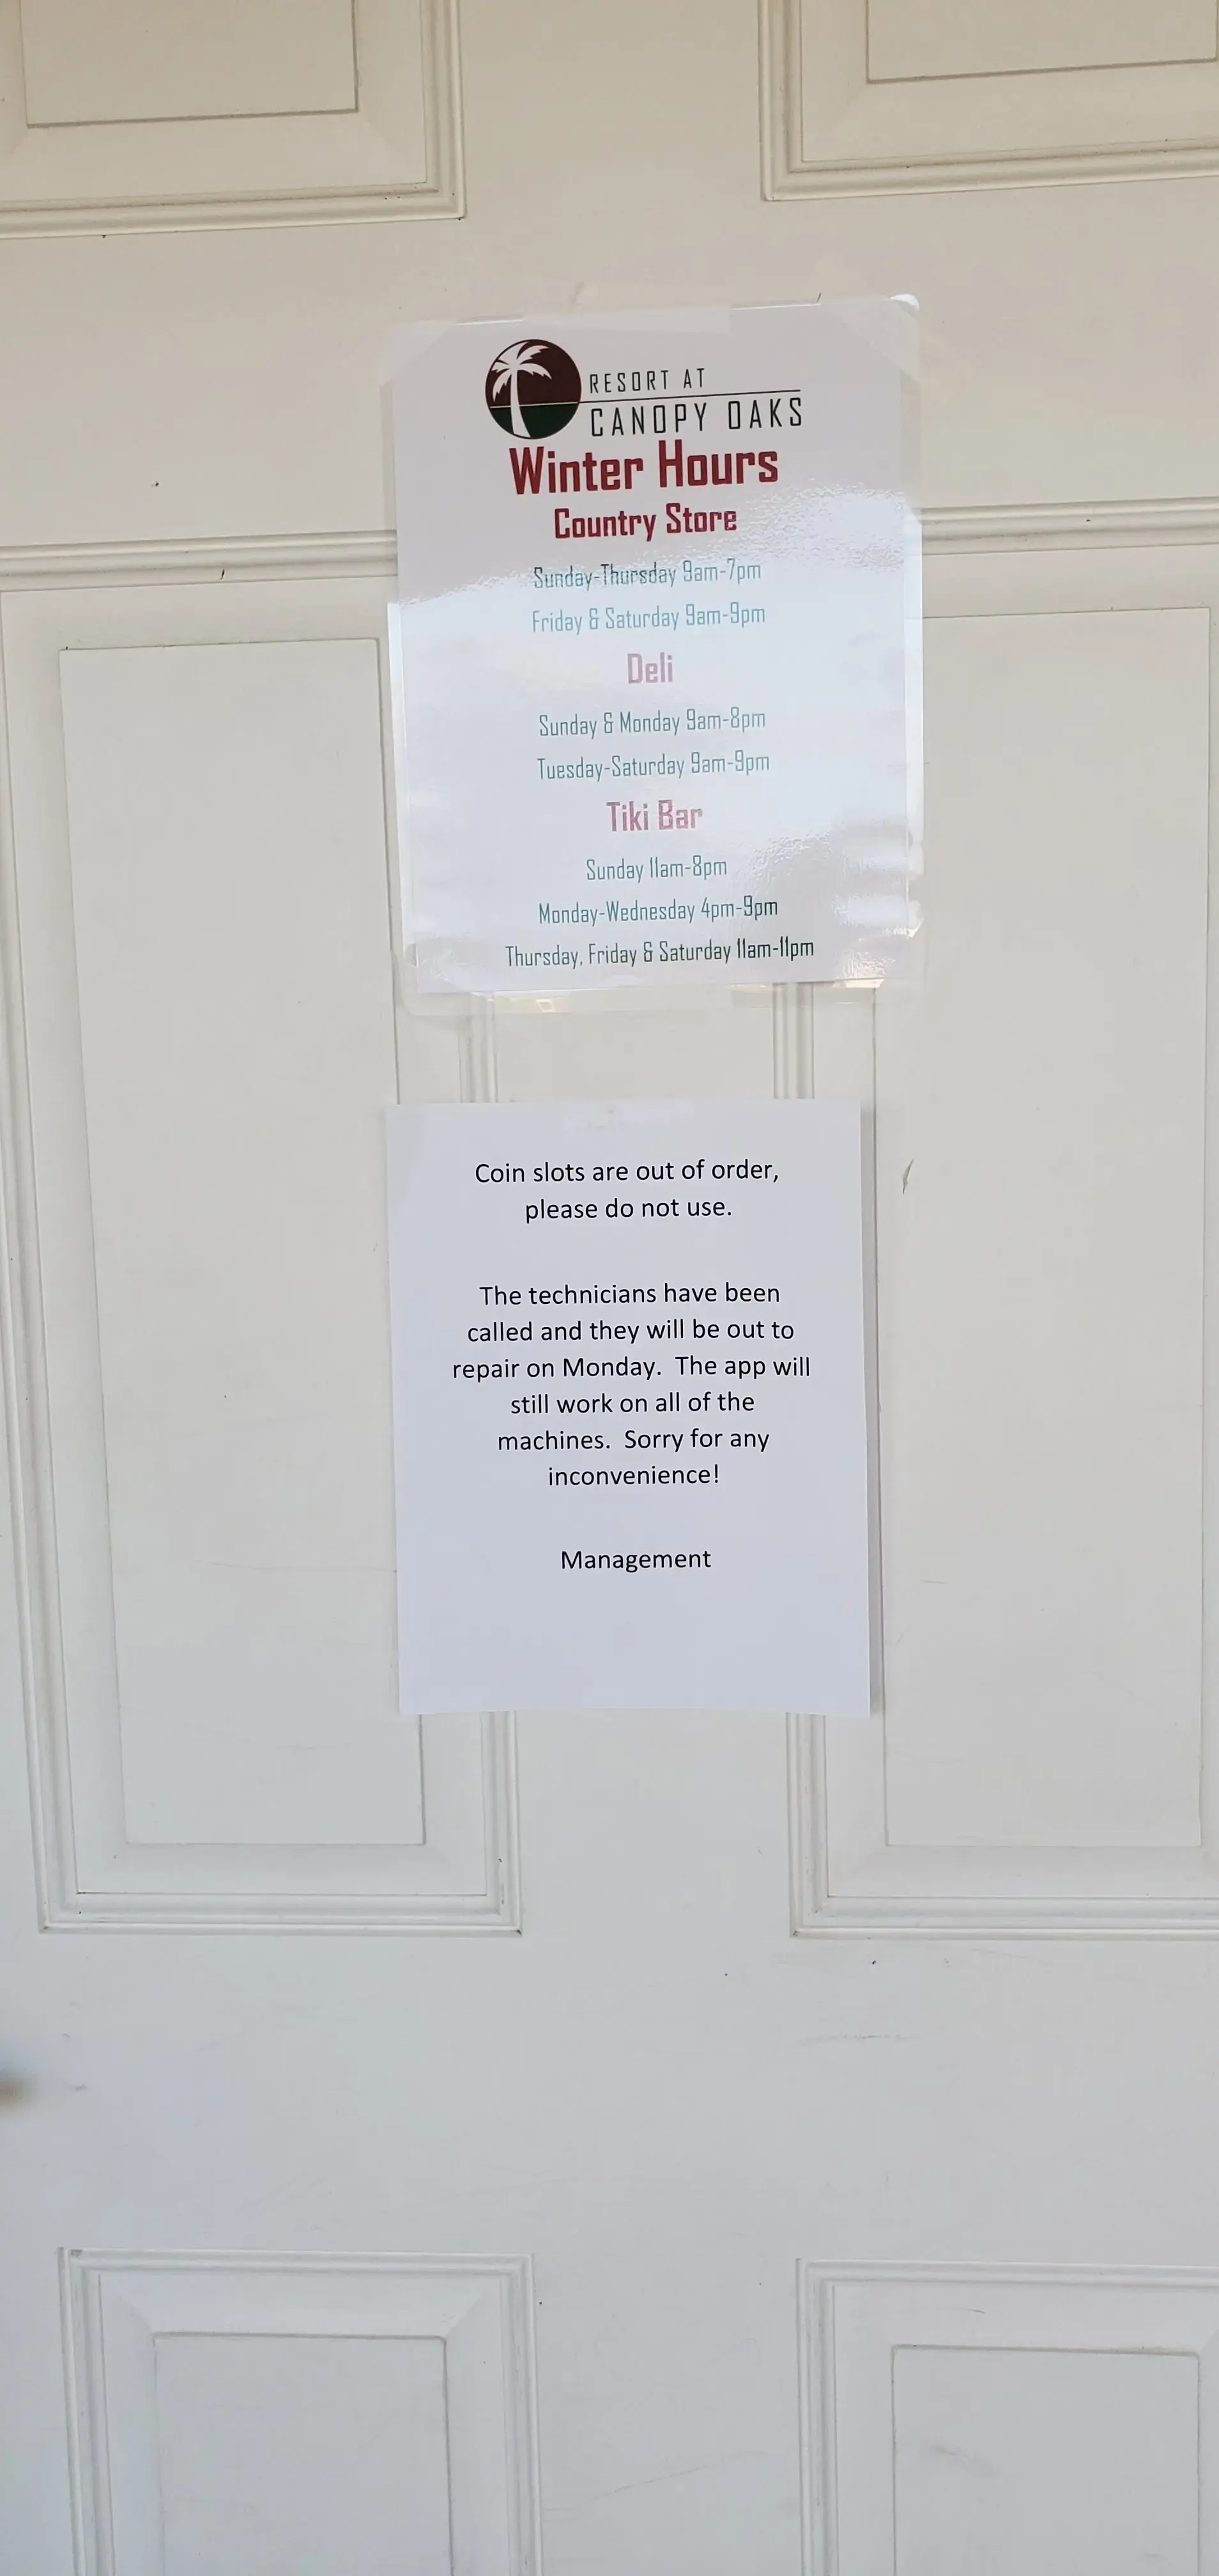 RESORT AT
CANOPY OAKS
Winter Hours
Country Store
Sunday-Thursday 9am-7pm
Friday & Saturday 9am-9pm
Deli
Sunday & Monday 9am-8pm
Tuesday-Saturday 9am-9pm
Tiki Bar
Sunday 11am-8pm
Monday-Wednesday 4pm-9pm
Thursday, Friday & Saturday 11am-11pm
Coin slots are out of order,
please do not use.
The technicians have been
called and they will be out to
repair on Monday.  The app will
still work on all of the
machines.  Sorry for any
inconvenience!
Management